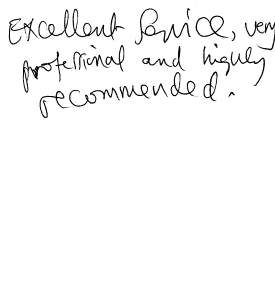 Excellent Service, very
professional and highly
recommended.